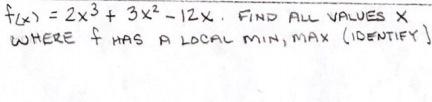 f(x) = 2x³ + 3x² - 12x. FIND ALL VALUES X
WHERE f HAS A LOCAL MIN, MAX (IDENTIFY)